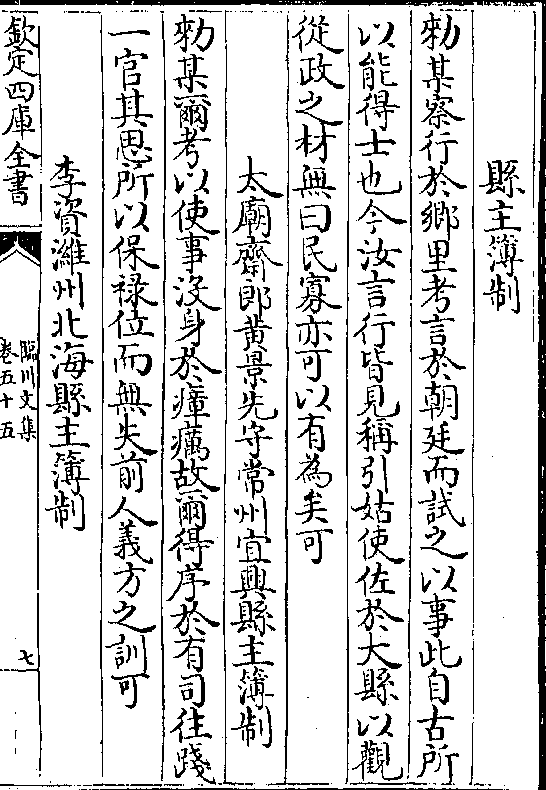 縣主簿制
勑某察行於鄉里考言於朝廷而試之以事此自古所
以能得士也今汝言行皆見稱引姑使佐於大縣以觀
從政之材無曰民寡亦可以有為矣可
太廟齋郎黃景先守常州宜興縣主簿制
勑某爾考以使事沒身於瘴癘故爾得序於有司往踐
一官其思所以保祿位而無失前人義方之訓可
李資濰州北海縣主簿制
欽定四庫全書
臨川文集
卷五十五
七